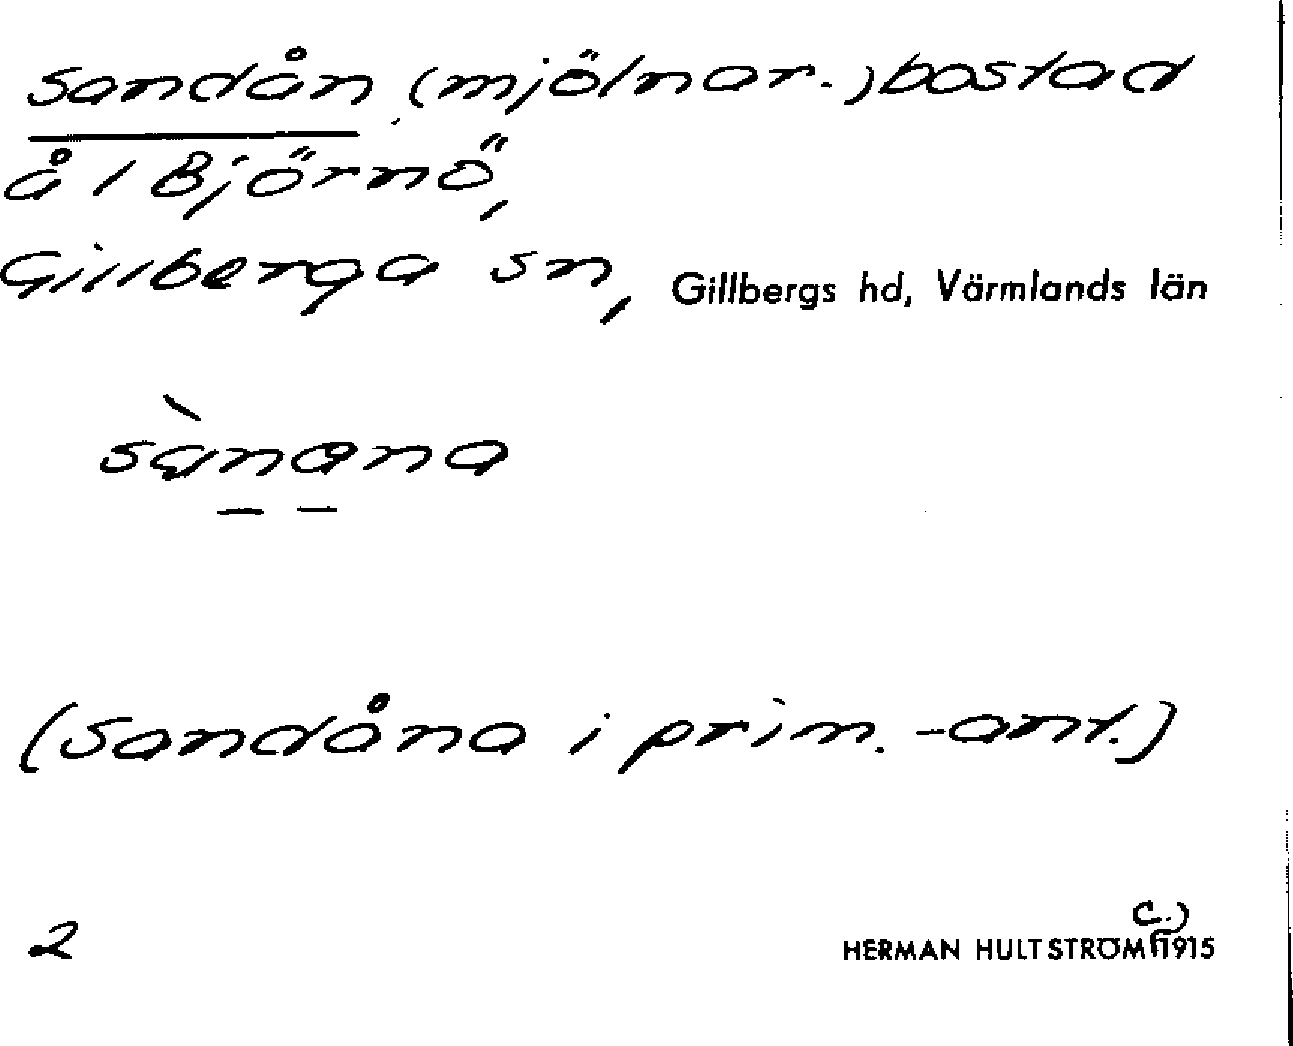 Sandån (mjölnar-)bostad
å 1 Björnö,
Gillberga sn, Gillbergs hd, Värmlands län
sànana
(Sandåna i prim.-ant.)
2 HERMAN HULTSTRÖM (c.) 1915